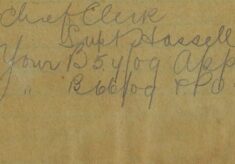 Chief Clerk
Supt Hassell
Your B54/09 App
" B66/09